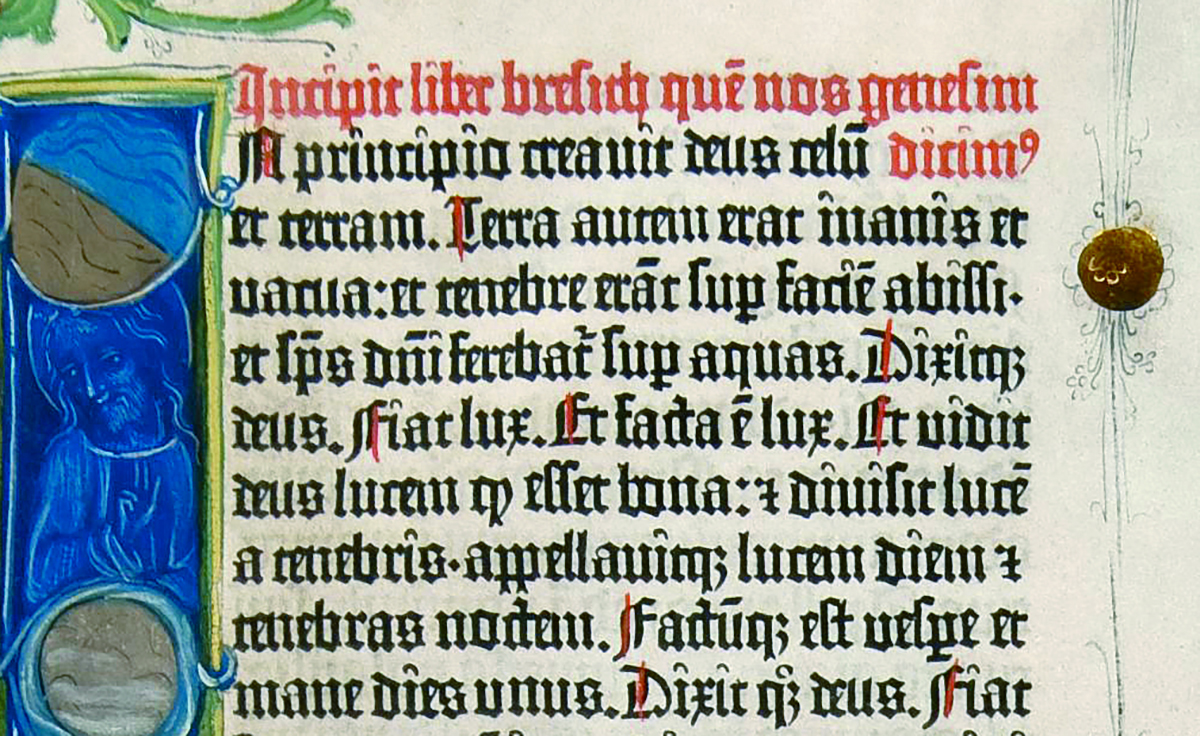 Incipit liber bresith quē nos genesim
In principio creauit deus celū dicimꝰ
et terram. Terra autem erat inanis et
vacua: et tenebre erāt sup faciē abissi.
et sp̄s dn̄i ferebat᷑ sup aquas. Dixitqꝫ
deus. Fiat lux. Et facta ē lux. Et vidit
deus lucem ꝙ esset bona: ⁊ diuisit lucē
a tenebris. appellauitqꝫ lucem diem ⁊
tenebras noctem. Factūqꝫ est vespe et
mane dies unus. Dixit qꝫ deus. Fiat